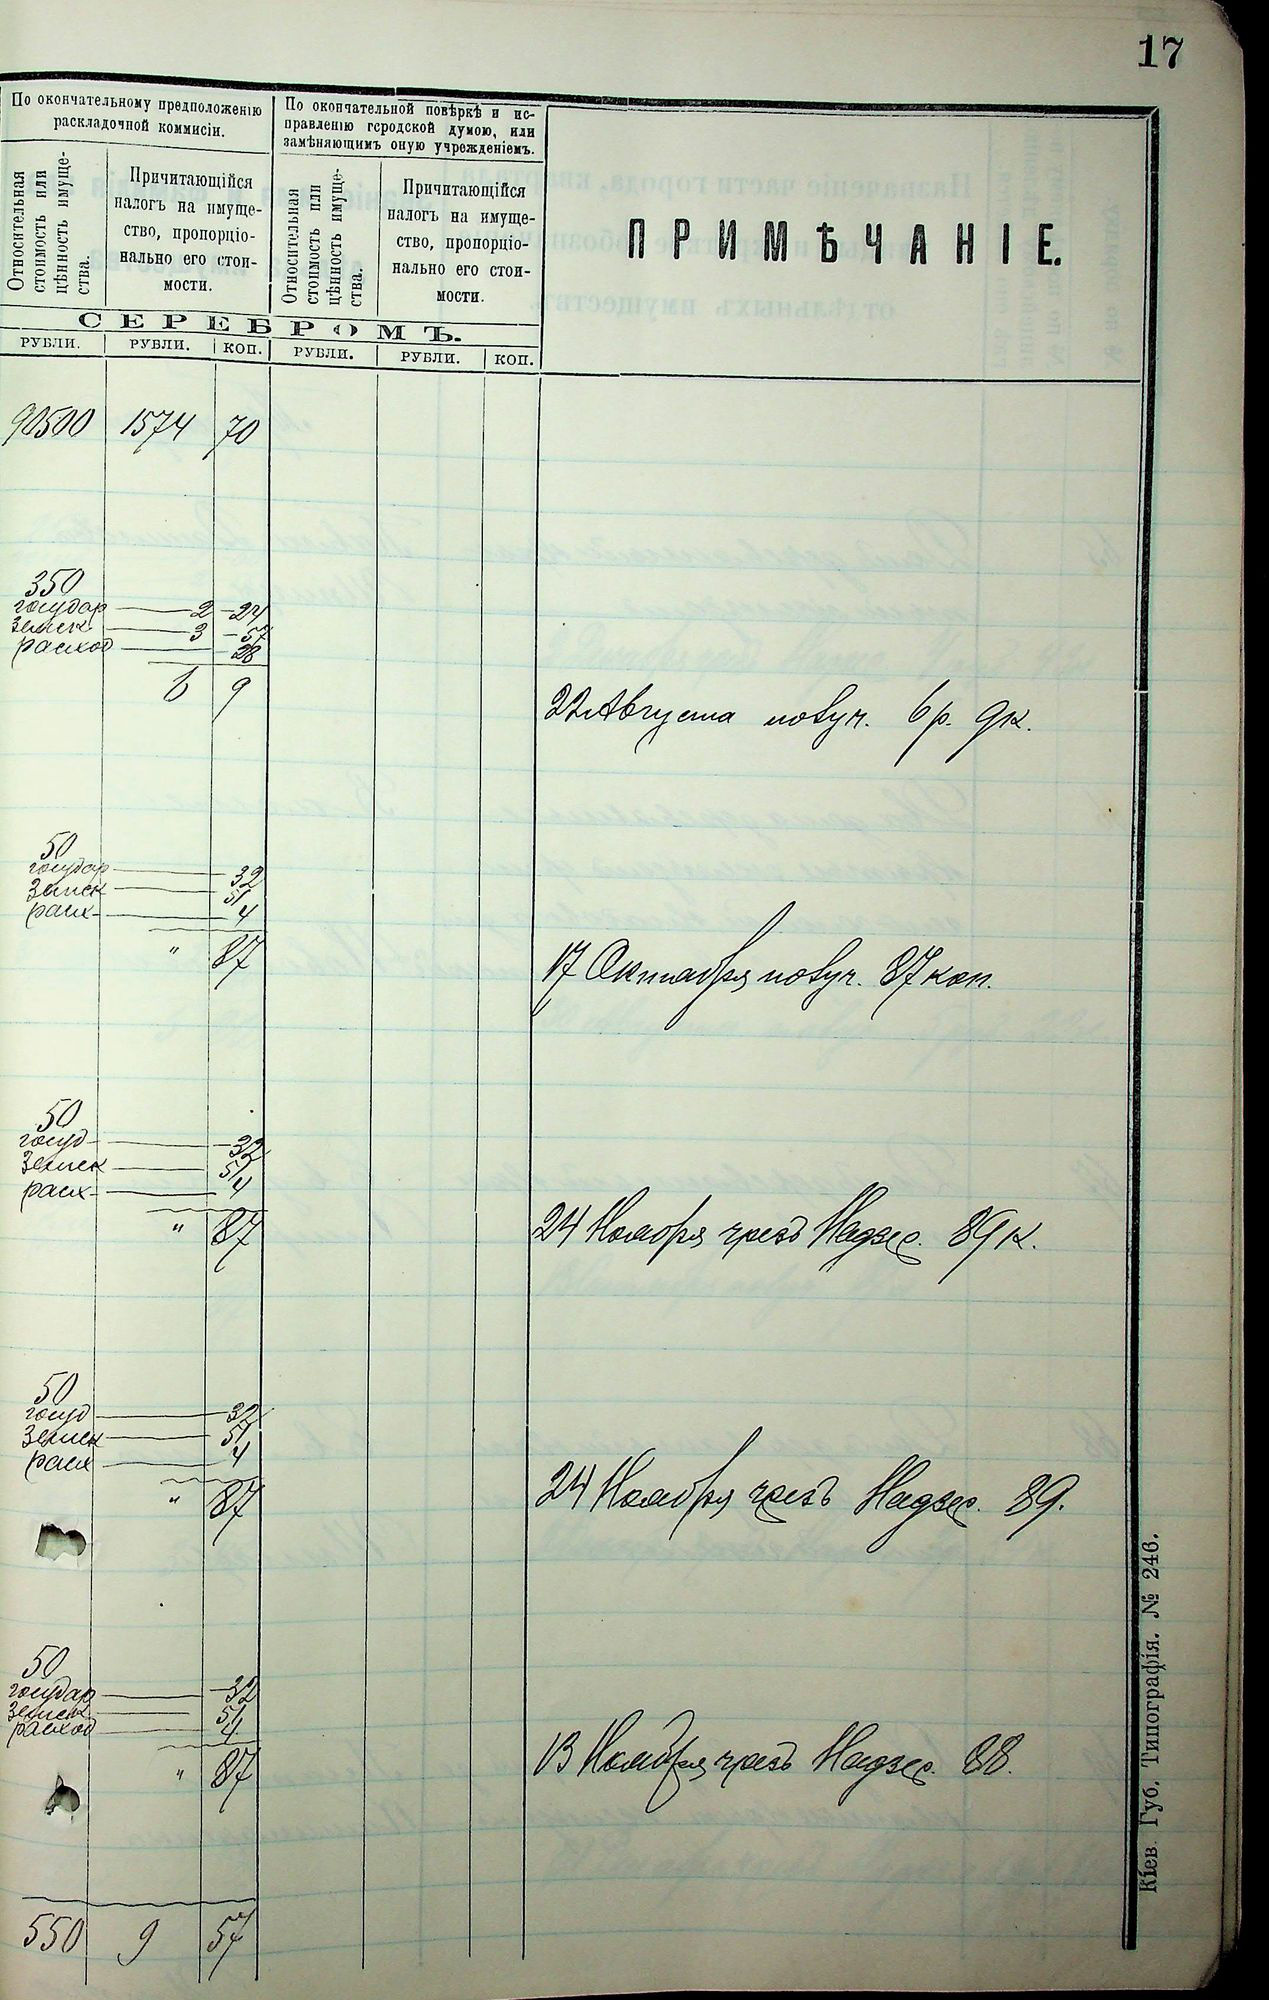 17
По окончательному предположенію
раскладочной коммисіи.
По окончательной повѣркѣ и ис-
правленію городской думою, или
замѣняющимъ оную учрежденіемъ.
Относительная
стоимость или
цѣнность имуще-
ства.
Причитающійся
налогъ на имуще-
ство, пропорціо-
нально его стои-
мости.
Относительная
стоимость или
цѣнность имуще-
ства.
Причитающійся
налогъ на имуще-
ство, пропорціо-
нально его стои-
мости.
ПРИМѢЧАНІЕ.
СЕРЕБРОМЪ.
РУБЛИ. РУБЛИ. КОП. РУБЛИ. РУБЛИ. КОП.
90500 1574 70
350
государ 2 24
земск 3 57
расход 28
6 9
22 Августа получ. 6 р. 9 к.
50
государ 32
земск 51
расх 4
" 87
17 Октября получ. 87 коп.
50
госуд 32
земск 51
расх 4
" 87
24 Ноября чрезъ Надзер. 89 к.
50
госуд 32
земск 51
расх 4
" 87
24 Ноября чрезъ Надзер. 89.
50
государ 32
земск 51
расход 4
" 87
13 Ноября чрезъ Надзер. 88.
550 9 57
Кіев. Губ. Типографія. № 246.